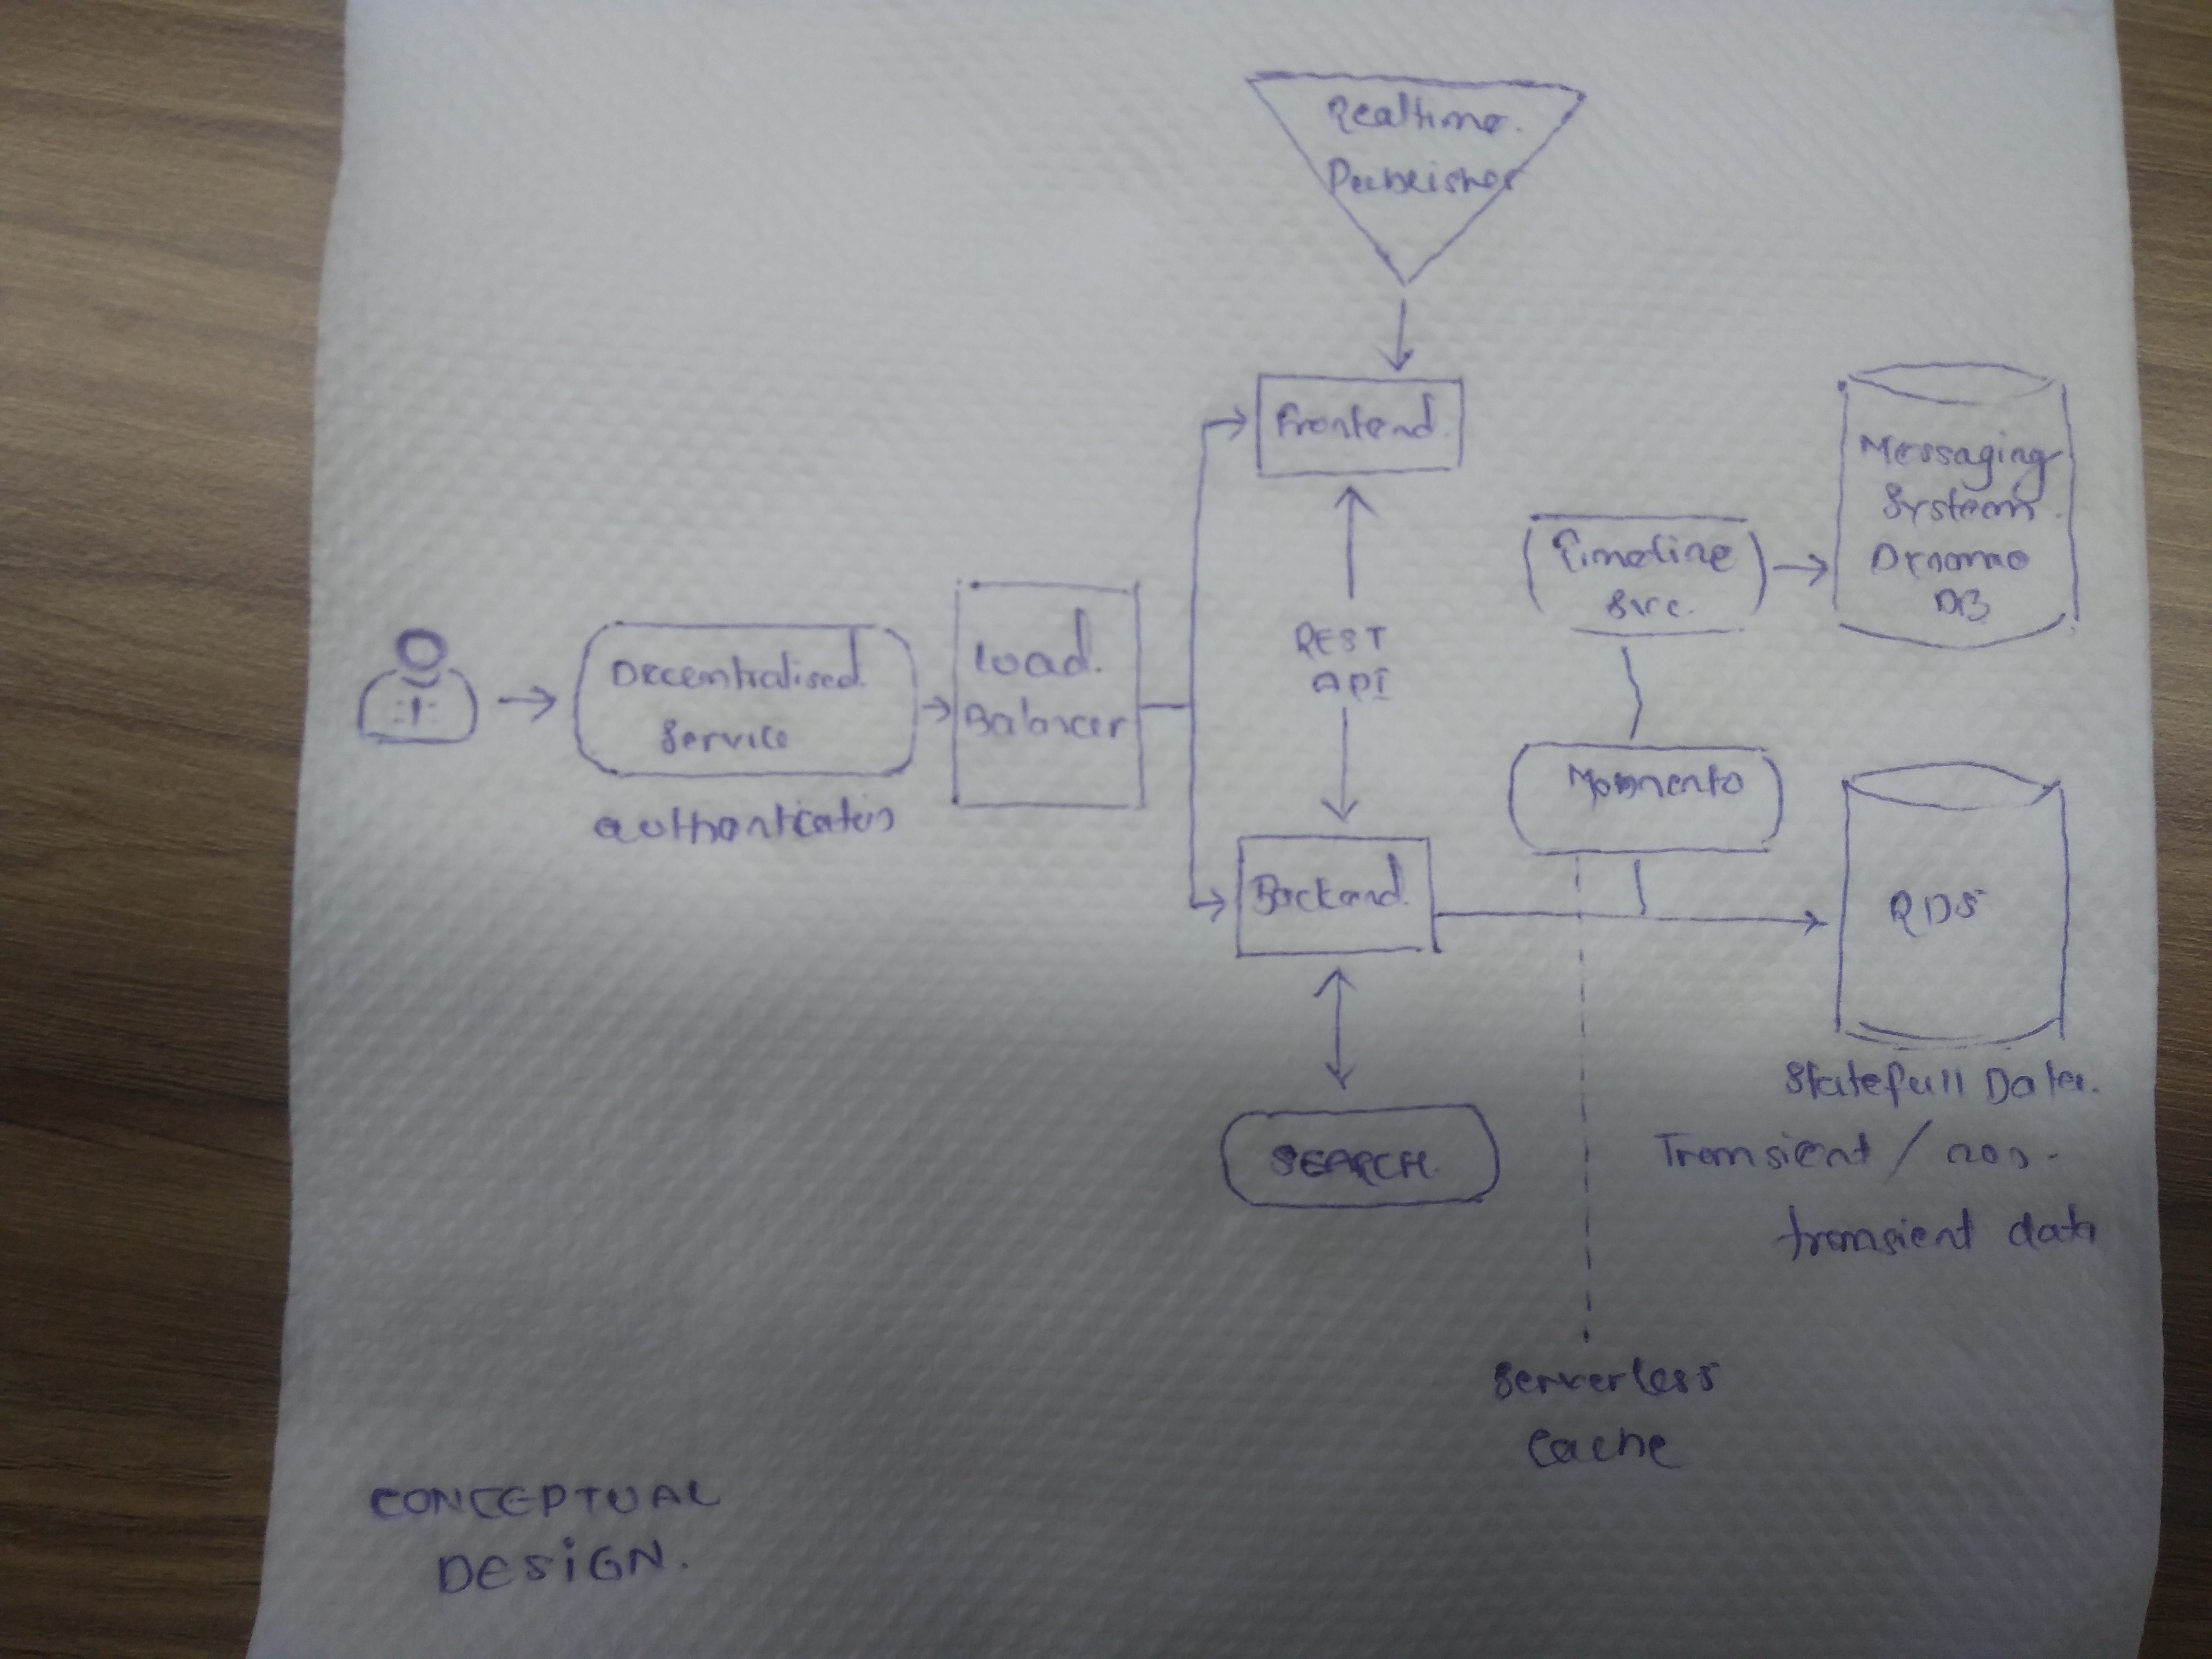 Realtime.
Publisher
Frontend.
Messaging
System.
Dynamo
DB
Timeline
Svc.
REST
API
Decentralised.
Service
authentication
Load.
Balancer
Momento
Backend.
RDS
SEARCH.
Statefull Data.
Transient / non-
transient data
Serverless
Cache
CONCEPTUAL
DESIGN.